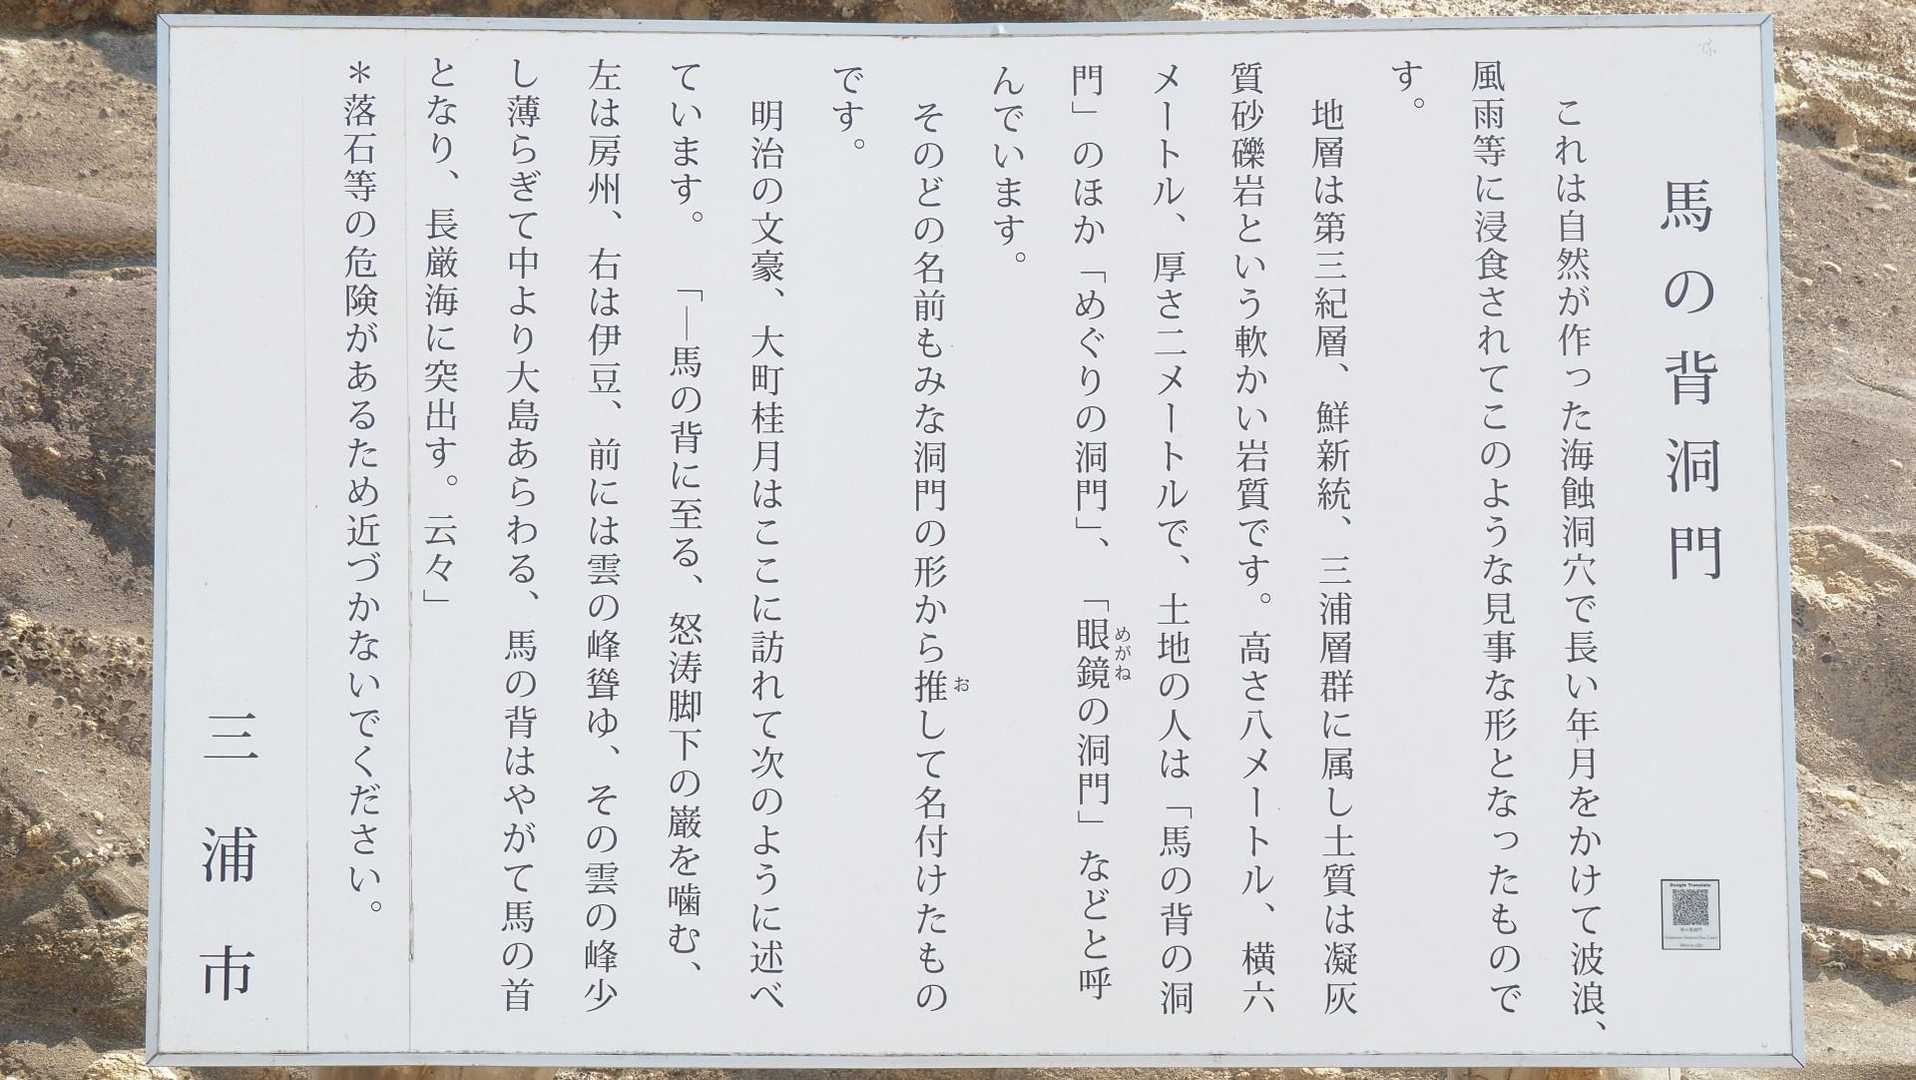 馬の背洞門
これは自然が作った海蝕洞穴で長い年月をかけて波浪、
風雨等に浸食されてこのような見事な形となったもので
す。
地層は第三紀層、鮮新統、三浦層群に属し土質は凝灰
質砂礫岩という軟かい岩質です。高さ八メートル、横六
メートル、厚さ二メートルで、土地の人は「馬の背の洞
門」のほか「めぐりの洞門」、「眼鏡の洞門」などと呼
めがね
んでいます。
そのどの名前もみな洞門の形から推して名付けたもの
お
です。
明治の文豪、大町桂月はここに訪れて次のように述べ
ています。「―馬の背に至る、怒涛脚下の巌を噛む、
左は房州、右は伊豆、前には雲の峰聳ゆ、その雲の峰少
し薄らぎて中より大島あらわる、馬の背はやがて馬の首
となり、長厳海に突出す。云々」
＊落石等の危険があるため近づかないでください。
三浦市
Google Translate